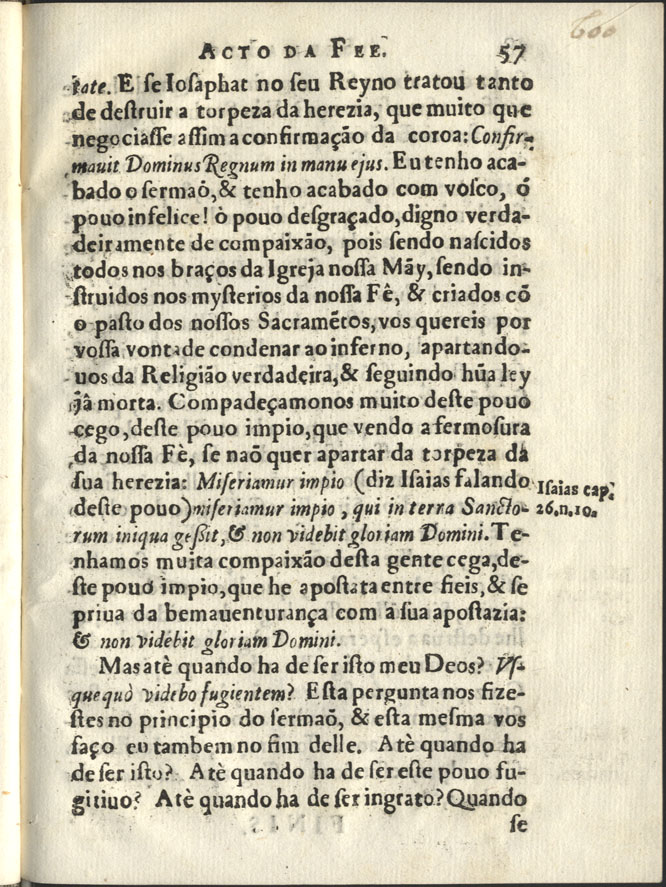 600
ACTO DA FEE. 57
tate. E ſe Ioſaphat no ſeu Reyno tratou tanto
de deſtruir a torpeza da herezia, que muito que
negociaſſe aſſim a confirmação da coroa: Confir-
mauit Dominus Regnum in manu ejus. Eu tenho aca-
bado o ſermaõ, & tenho acabado com voſco, ó
pouo infelice! ò pouo deſgraçado, digno verda-
deiramente de compaixão, pois ſendo naſcidos
todos nos braços da Igreja noſſa Mãy, ſendo in-
ſtruidos nos myſterios da noſſa Fê, & criados cõ
o paſto dos noſſos Sacramẽtos, vos quereis por
voſſa vontade condenar ao inferno, apartando-
uos da Religião verdadeira, & ſeguindo hũa ley
jâ morta. Compadeçamonos muito deſte pouo
cego, deſte pouo impio, que vendo a fermoſura
da noſſa Fè, ſe naõ quer apartar da torpeza da
ſua herezia: Miſeriamur impio (diz Iſaias falando
deſte pouo) miſeriamur impio, qui in terra Sancto-
rum iniqua geſsit, & non videbit gloriam Domini. Te-
nhamos muita compaixão deſta gente cega, de-
ſte pouo impio, que he apoſtata entre fieis, & ſe
priua da bemauenturança com a ſua apoſtazia:
& non videbit gloriam Domini.
Mas atè quando ha de ſer iſto meu Deos? Vſ-
quequò videbo fugientem? Eſta pergunta nos fize-
ſtes no principio do ſermaõ, & eſta meſma vos
faço eu tambem no fim delle. Atè quando ha
de ſer iſto? Atè quando ha de ſer eſte pouo fu-
gitiuo? Atè quando ha de ſer ingrato? Quando
ſe
Iſaias cap.
26. n. 10.